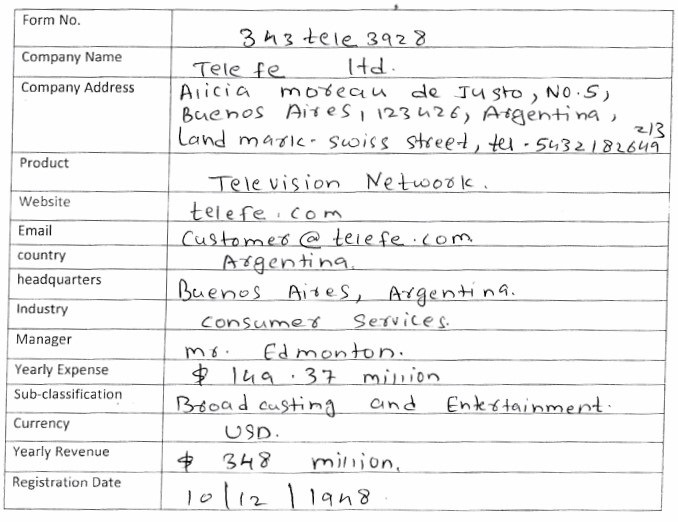 Form No.
343 tele 3928
Company Name
Telefe ltd.
Company Address
Alicia moreau de Justo, NO.5,
Buenos Aires, 123426, Argentina,
Land mark - swiss street, tel - 5432182649
213
Product
Television Network.
Website
telefe.com
Email
Customer@telefe.com
country
Argentina.
headquarters
Buenos Aires, Argentina.
Industry
consumer Services.
Manager
mr. Edmonton.
Yearly Expense
$ 149.37 million
Sub-classification
Broadcasting and Entertainment.
Currency
USD.
Yearly Revenue
$ 348 million.
Registration Date
10/12/1948.